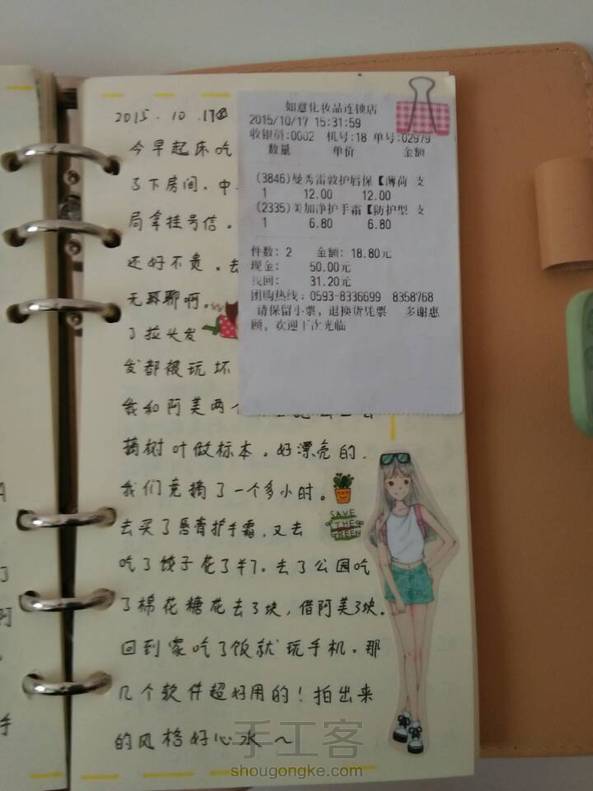 2015.10.17
今早起床吃
了下房间，中
局拿挂号信。
还好不贵。去
无聊啊。
了拉头发
发都被玩坏
我和阿芙两个
摘树叶做标本。好漂亮的.
我们竟摘了一个多小时。
去买了唇膏护手霜，又去
吃了饺子花了¥7。去了公园吃
了棉花糖花去了3块，借阿芙3块.
回到家吃了饭就玩手机。那
几个软件超好用的！拍出来
的风格好心水～
如意化妆品连锁店
2015/10/17 15:31:59
收银员:0002 机号:18 单号:02979
数量 单价 金额
(3846)曼秀雷敦护唇保【薄荷 支
1 12.00 12.00
(2335)美加净护手霜【防护型 支
1 6.80 6.80
件数: 2 金额: 18.80元
现金: 50.00元
找回: 31.20元
团购热线: 0593-8336699 8358768
请保留小票，退换货凭票 多谢惠
顾，欢迎下次光临
SAVE
THE
GREEN
手工客
shougongke.com